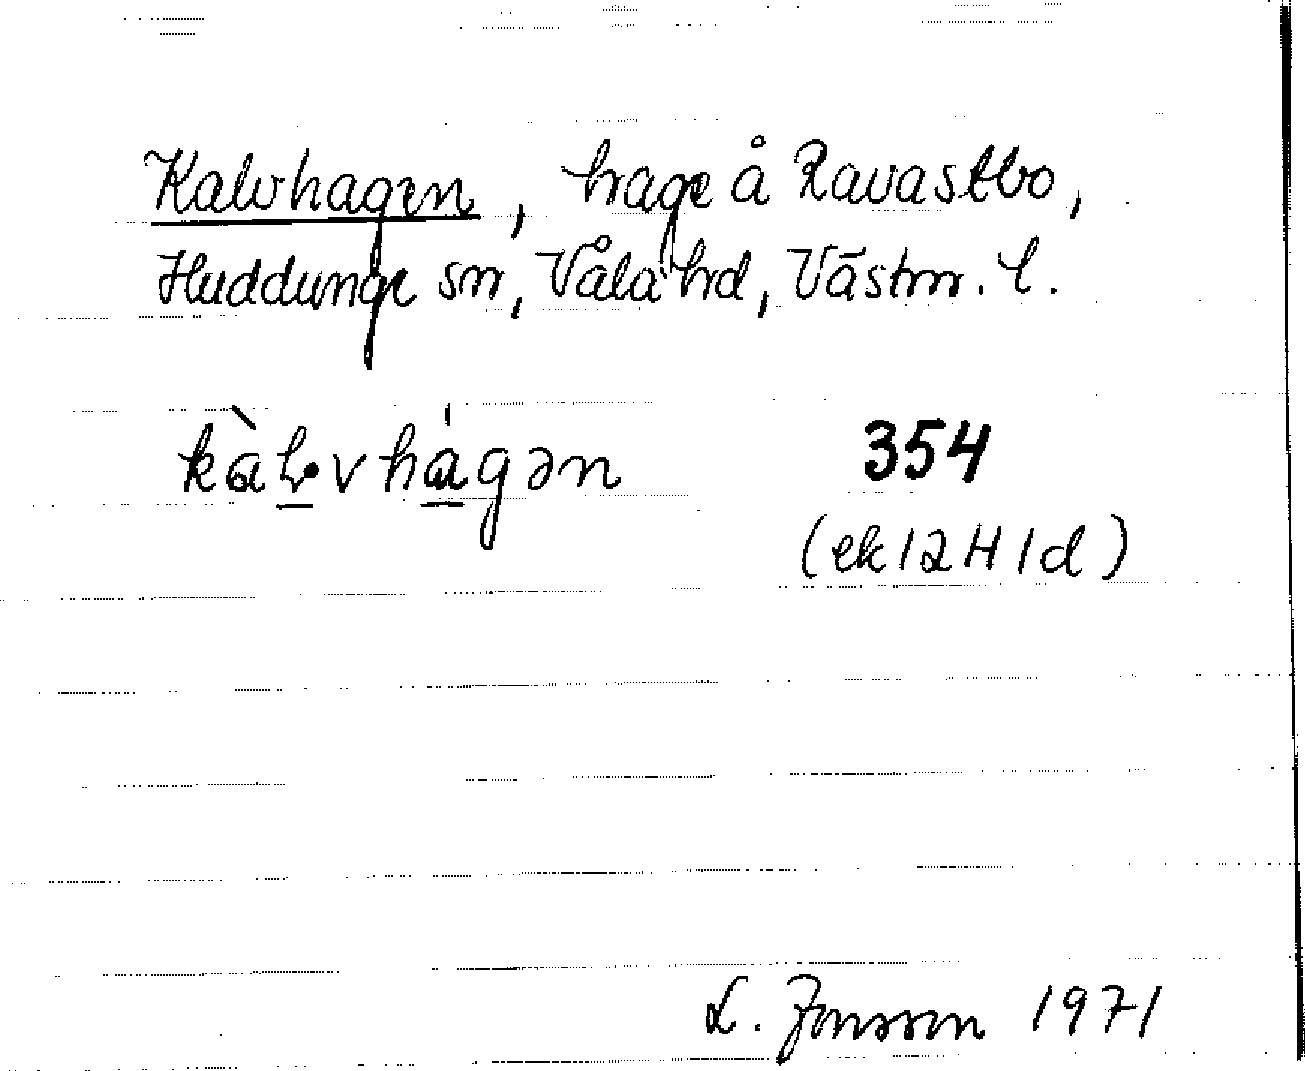 Kalvhagen, hage å Ravastbo,
Huddunge sn, Våla hd, Västm. l.
354
(ek 12 H 1d)
L. Jonsson 1971